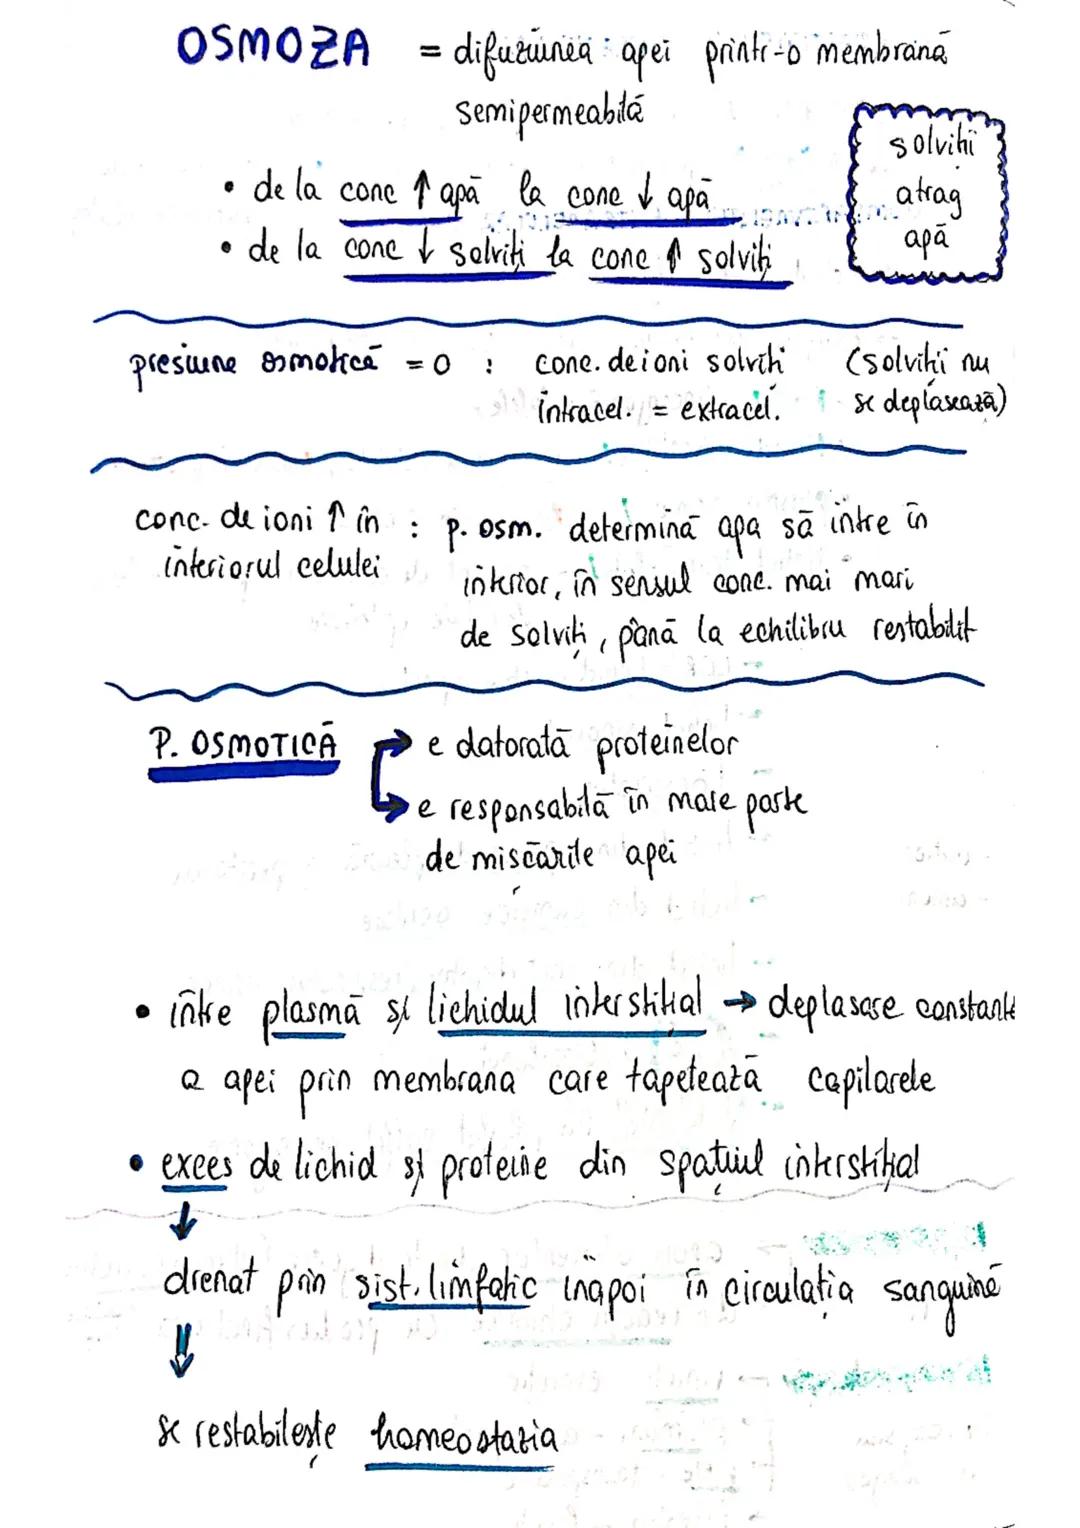 OSMOZA = difuziunea apei printr-o membrană
semipermeabilă
• de la conc ↑ apă la conc ↓ apă
• de la conc ↓ solviți la conc ↑ solviți
solviții
atrag
apă
presiune osmotică = 0 : conc. de ioni solviți (solviții nu
intracel. = extracel. se deplasează)
conc. de ioni ↑ în : p. osm. determină apa să intre în
interiorul celulei interior, în sensul conc. mai mari
de solviți, până la echilibru restabilit
P. OSMOTICĂ → e datorată proteinelor
→ e responsabilă în mare parte
de mișcările apei
• între plasmă și lichidul interstițial → deplasare constantă
a apei prin membrana care tapetează capilarele
• exces de lichid și proteine din spațiul interstițial
↓
drenat prin sist. limfatic înapoi în circulația sanguină
⇓
se restabilește homeostazia